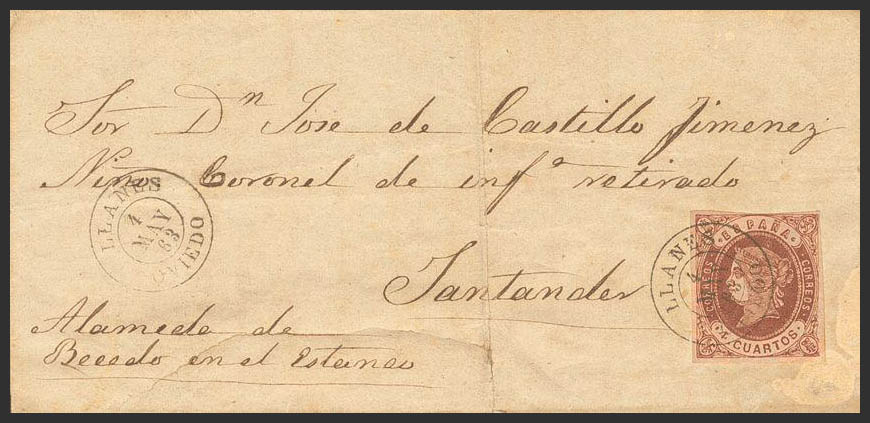 Sor Dn Jose de Castillo Jimenez
Niño Coronel de infª retirado
Santander
Alameda de
Becedo en el Estanco
LLANES
4
MAY
63
OVIEDO
LLANES
4
63
ESPAÑA
CORREOS
CORREOS
4 CUARTOS